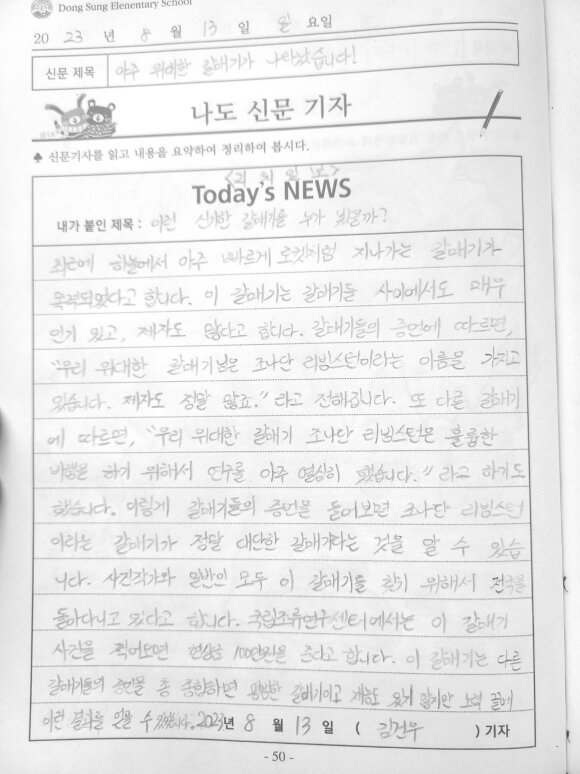 Dong Sung Elementary School
20 23 년 8 월 13 일 일 요일
신문 제목 아주 위대한 갈매기가 나타났습니다!
나도 신문 기자
♠ 신문기사를 읽고 내용을 요약하여 정리하여 봅시다.
Today's NEWS
내가 붙인 제목 : 이런 신기한 갈매기를 누가 봤을까?
최근에 하늘에서 아주 빠르게 로켓처럼 지나가는 갈매기가
목격되었다고 합니다. 이 갈매기는 갈매기들 사이에서도 매우
인기 있고, 제자도 많다고 합니다. 갈매기들의 증언에 따르면,
"우리 위대한 갈매기님은 조나단 리빙스턴이라는 이름을 가지고
있습니다. 제자도 정말 많죠." 라고 전해집니다. 또 다른 갈매기
에 따르면, "우리 위대한 갈매기 조나단 리빙스턴은 훌륭한
비행을 하기 위해서 연구를 아주 열심히 했습니다." 라고 하기도
했습니다. 이렇게 갈매기들의 증언을 들어보면 조나단 리빙스턴
이라는 갈매기가 정말 대단한 갈매기라는 것을 알 수 있습
니다. 사진작가와 일반인 모두 이 갈매기를 찾기 위해서 전국을
돌아다니고 있다고 합니다. 국립조류연구센터에서는 이 갈매기
사진을 찍어오면 현상금 100만원을 준다고 합니다. 이 갈매기는 다른
갈매기들의 증언을 총 종합하면 평범한 갈매기이고 제자도 있지 않지만 노력 끝에
이런 결과를 얻을 수 있었습니다. 2023년 8 월 13 일 ( 김건우 ) 기자
- 50 -